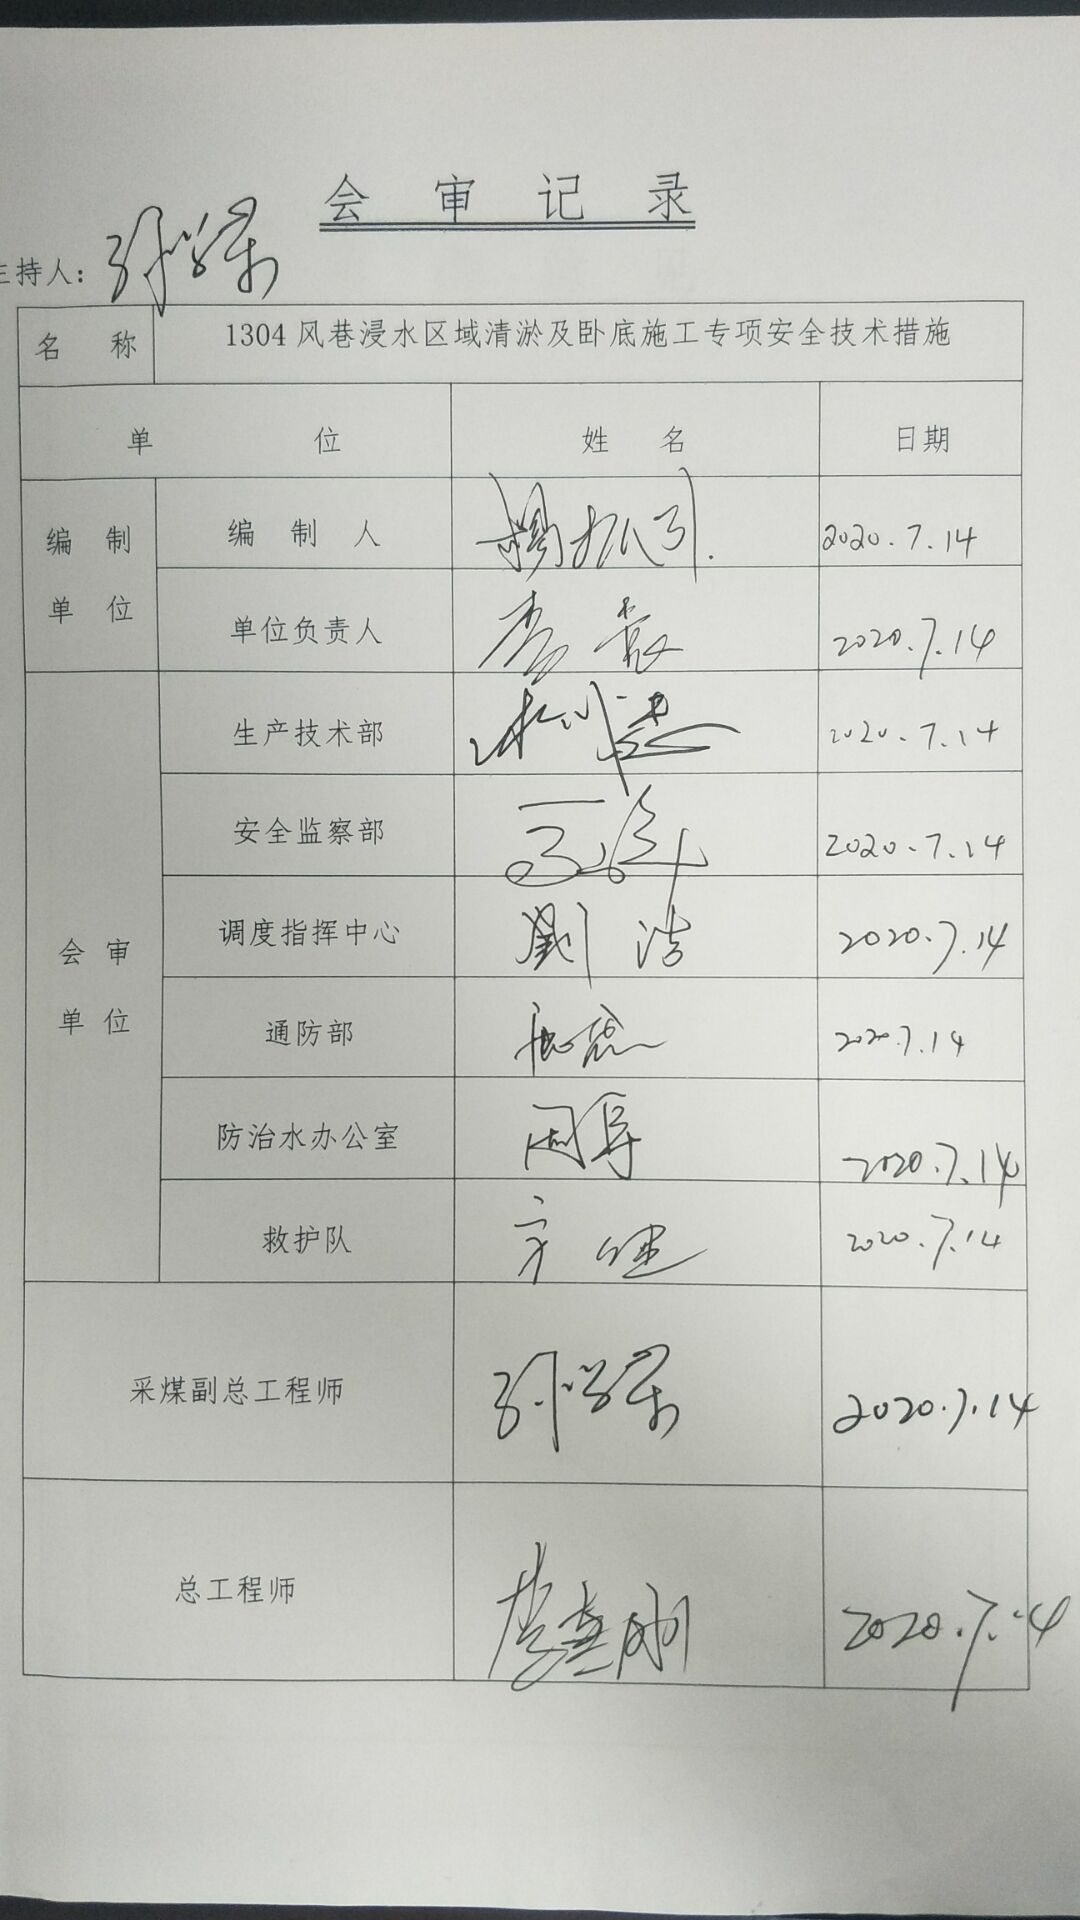 会 审 记 录
主持人：
名 称 1304 风巷浸水区域清淤及卧底施工专项安全技术措施
单 位 姓 名 日期
编 制 单 位
编 制 人 2020.7.14
单位负责人 2020.7.14
会 审 单 位
生产技术部 2020.7.14
安全监察部 2020.7.14
调度指挥中心 劉 浩 2020.7.14
通防部 2020.7.14
防治水办公室 2020.7.14
救护队 2020.7.14
采煤副总工程师 2020.7.14
总工程师 2020.7.14